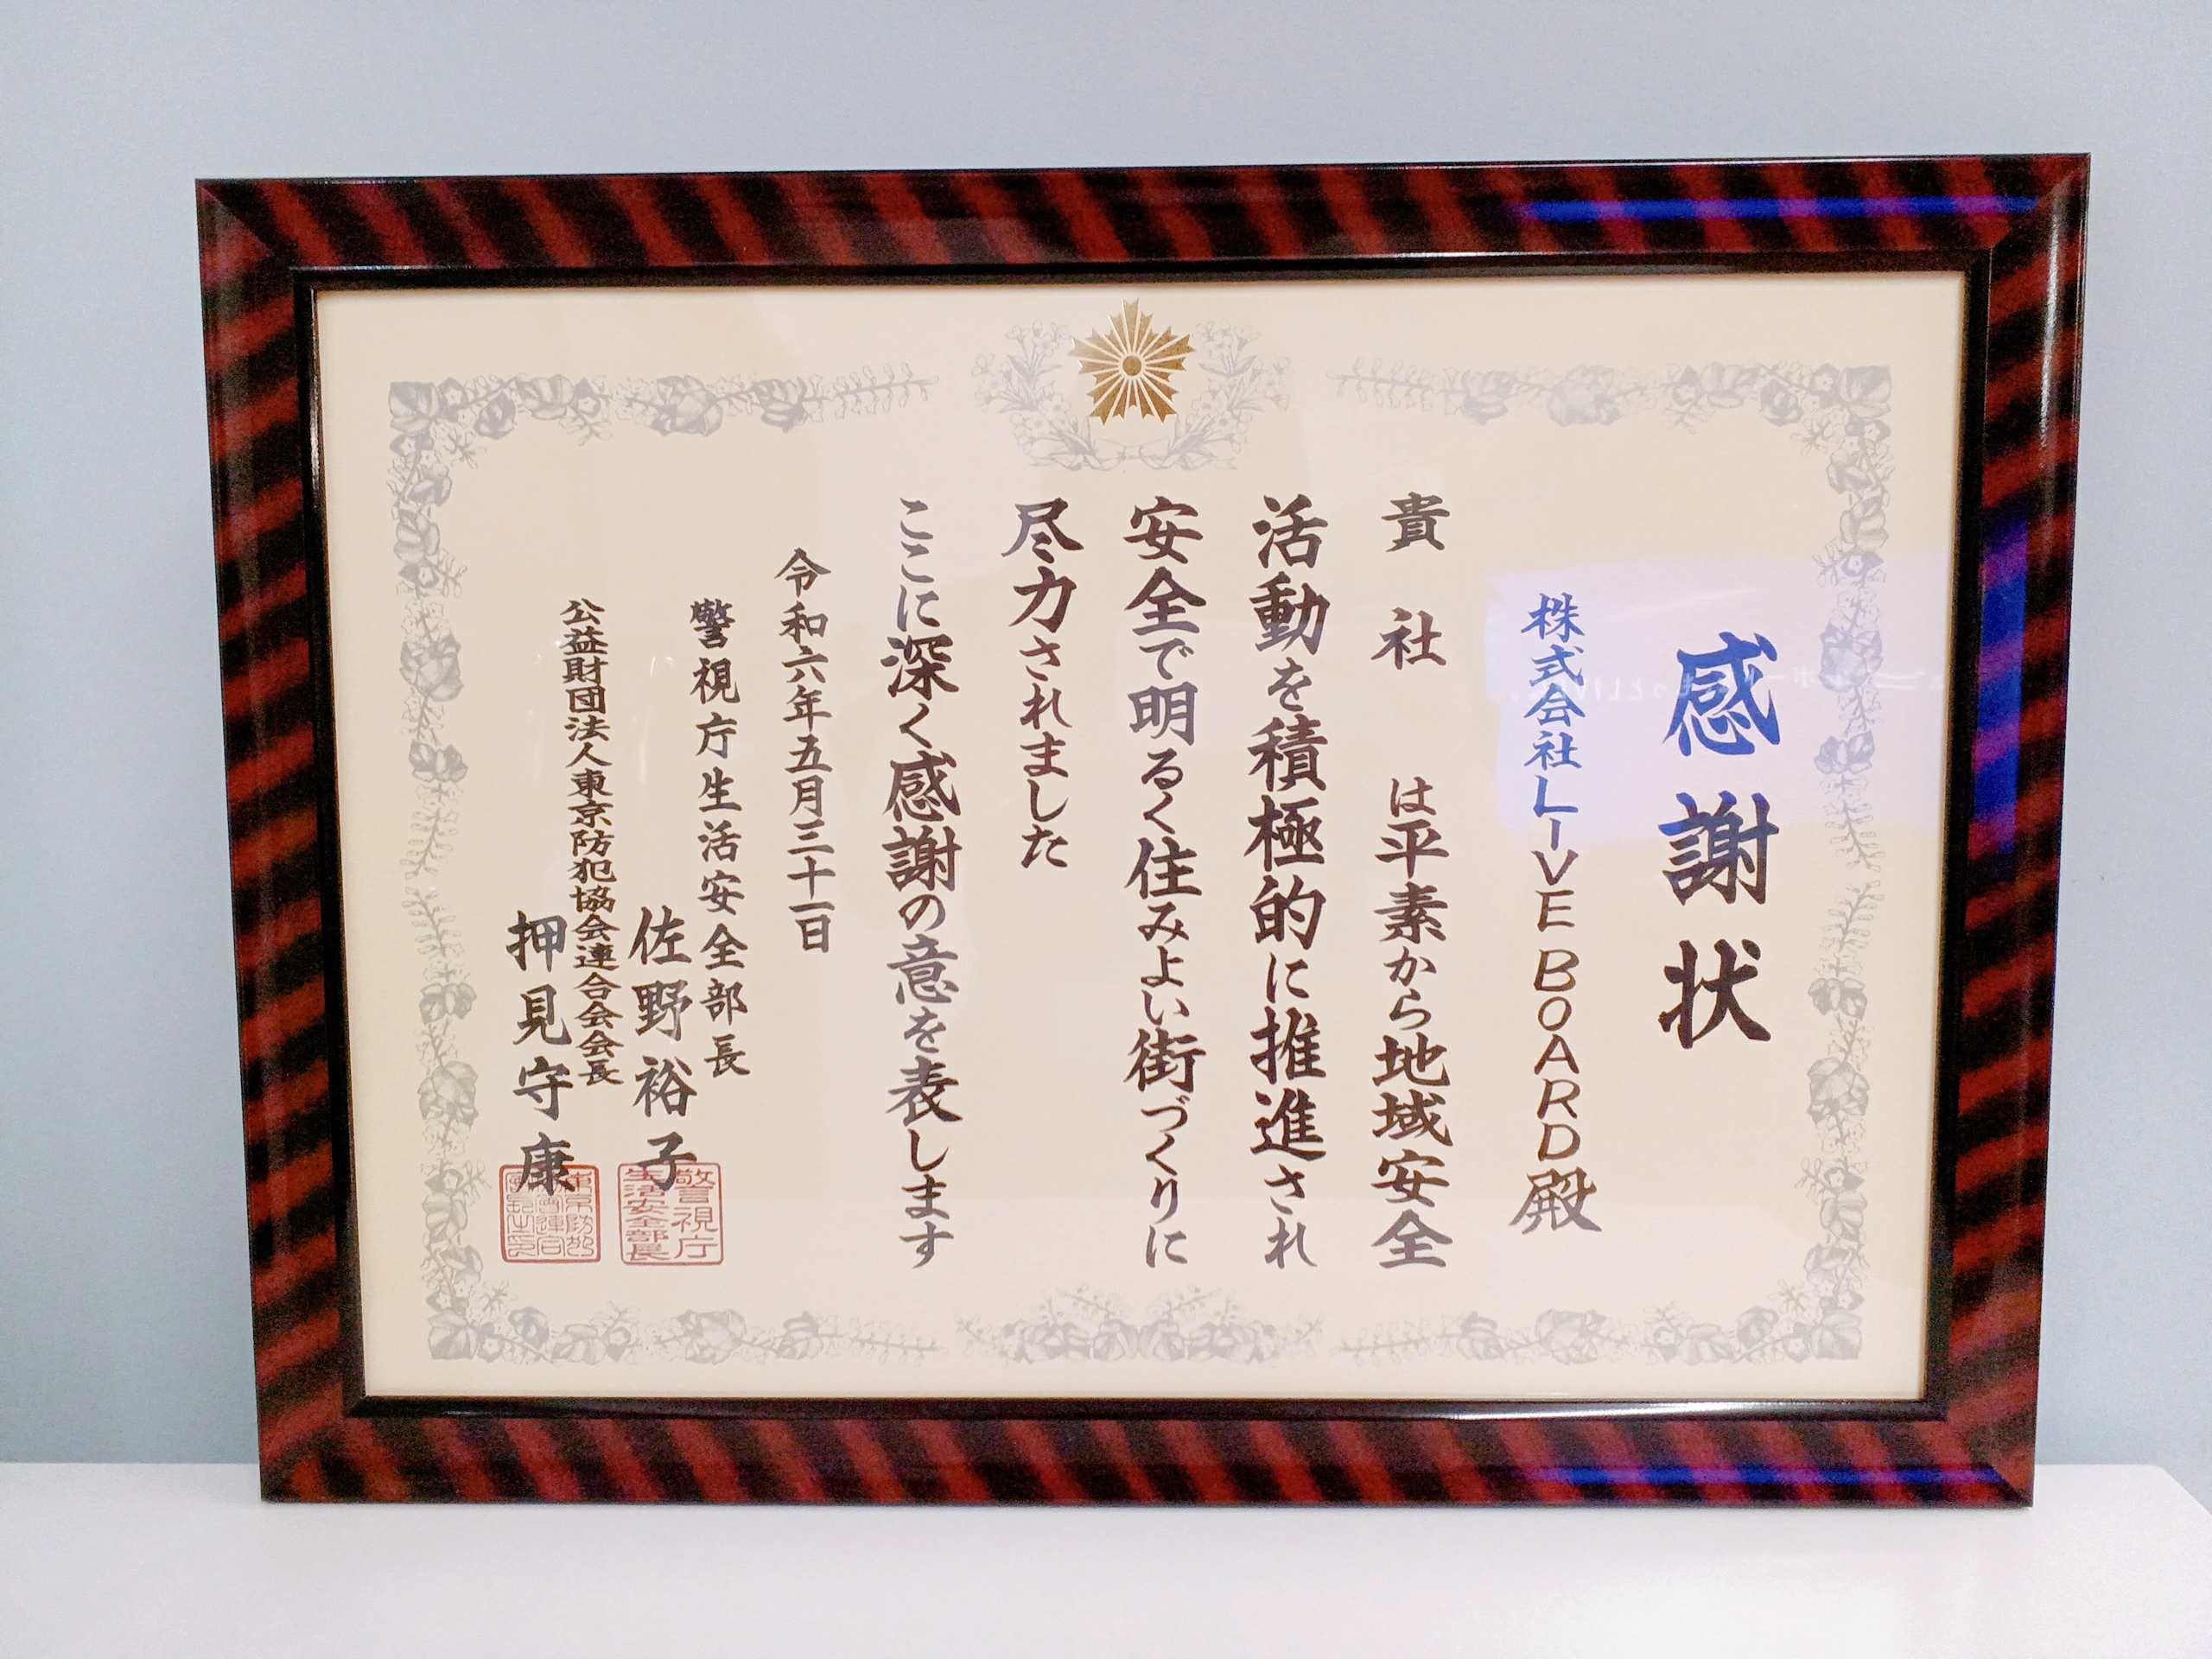 感謝状
株式会社LIVE BOARD殿
貴社は平素から地域安全
活動を積極的に推進され
安全で明るく住みよい街づくりに
尽力されました
ここに深く感謝の意を表します
令和六年五月三十一日
警視庁生活安全部長
佐野裕子
警視庁
生活安全部長
公益財団法人東京防犯協会連合会会長
押見守康